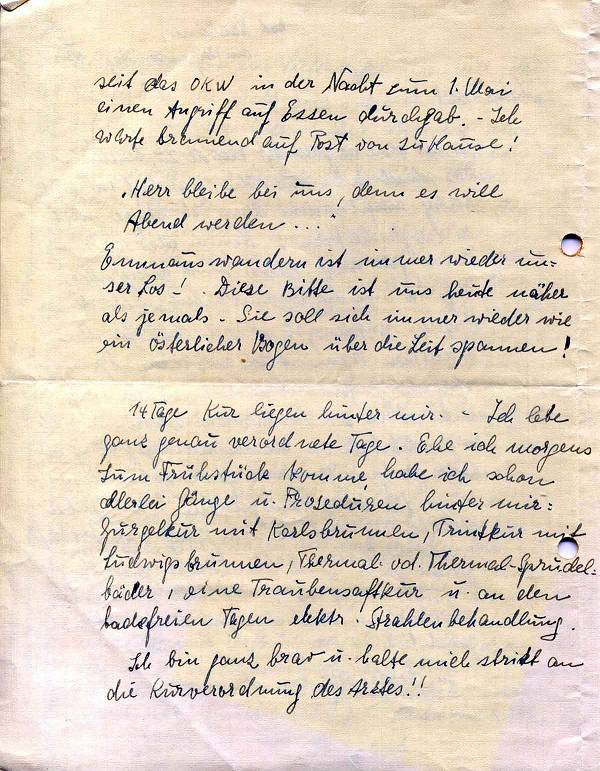 seit das OKW in der Nacht zum 1. Mai
einen Angriff auf Essen durchgab. - Ich
warte brennend auf Post von zu Hause!
"Herr bleibe bei uns, denn es will
Abend werden ..."
Emmauswandern ist immer wieder un=
ser Los! . Diese Bitte ist uns heute näher
als jemals - Sie soll sich immer wieder wie
ein österlicher Bogen über die Zeit spannen!
14 Tage Kur liegen hinter mir. - Ich lebe
ganz genau verordnete Tage. Ehe ich morgens
zum Frühstück komme, habe ich schon
allerlei Gänge u. Proseduren hinter mir:
Gurgelkur mit Karlsbrunnen, Trinkkur mit
Ludwigsbrunnen, Thermal- od. Thermal-Sprudel-
bäder, eine Traubensaftkur u. an den
badefreien Tagen elektr. Strahlenbehandlung.
Ich bin ganz brav u. halte mich strikt an
die Kurverordnung des Arztes!!